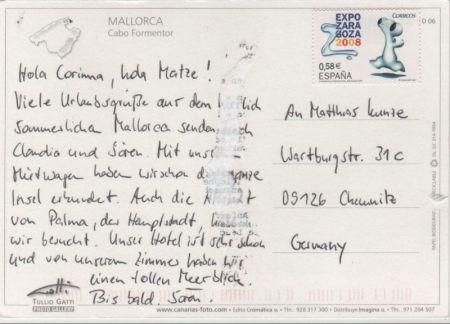 MALLORCA
Cabo Formentor
Hola Corinna, hola Matze!
Viele Urlaubsgrüße aus dem
sommerlichen Mallorca senden
Claudia und Sören. Mit
Mietwagen haben wir schon die
Insel erkundet. Auch die
von Palma, der Hauptstadt, haben
wir besucht. Unser Hotel ist sehr schön
und von unserem Zimmer haben wir
einen tollen Meerblick.
Bis bald, Sören.
TULLIO GATTI
PHOTO GALLERY
EXPO
ZARA
GOZA
2008
CORREOS
0,58€
ESPAÑA
An Matthias Kunze
Wartburgstr. 31c
09126 Chemnitz
Germany
www.canarias-foto.com - Edita Cromática s.l. - Tfn: 928 317 300 - Distribuye Imagina s.l. - Tfn: 971 204 507